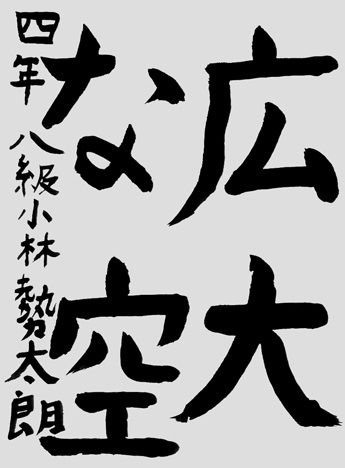 広大
な空
四年 八級 小林勢太朗